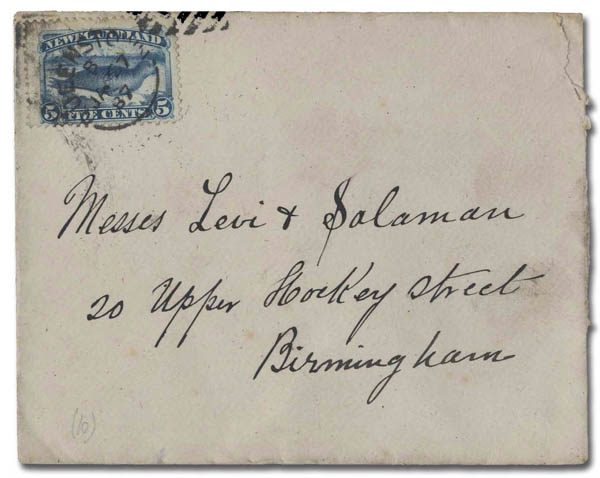 NEWFOUNDLAND
5 FIVE CENTS 5
87
Messes Levi & Solaman
20 Upper Hockey street
Birmingham
(10)